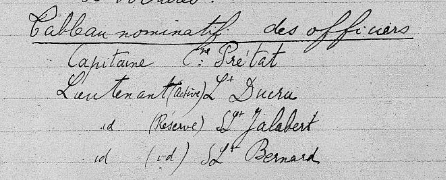 Tableau nominatif des officiers
Capitaine Cne Prétat
Lieutenant (active) Lt Ducru
id (Réserve) SLt Jalabert
id (id) SLt Bernard